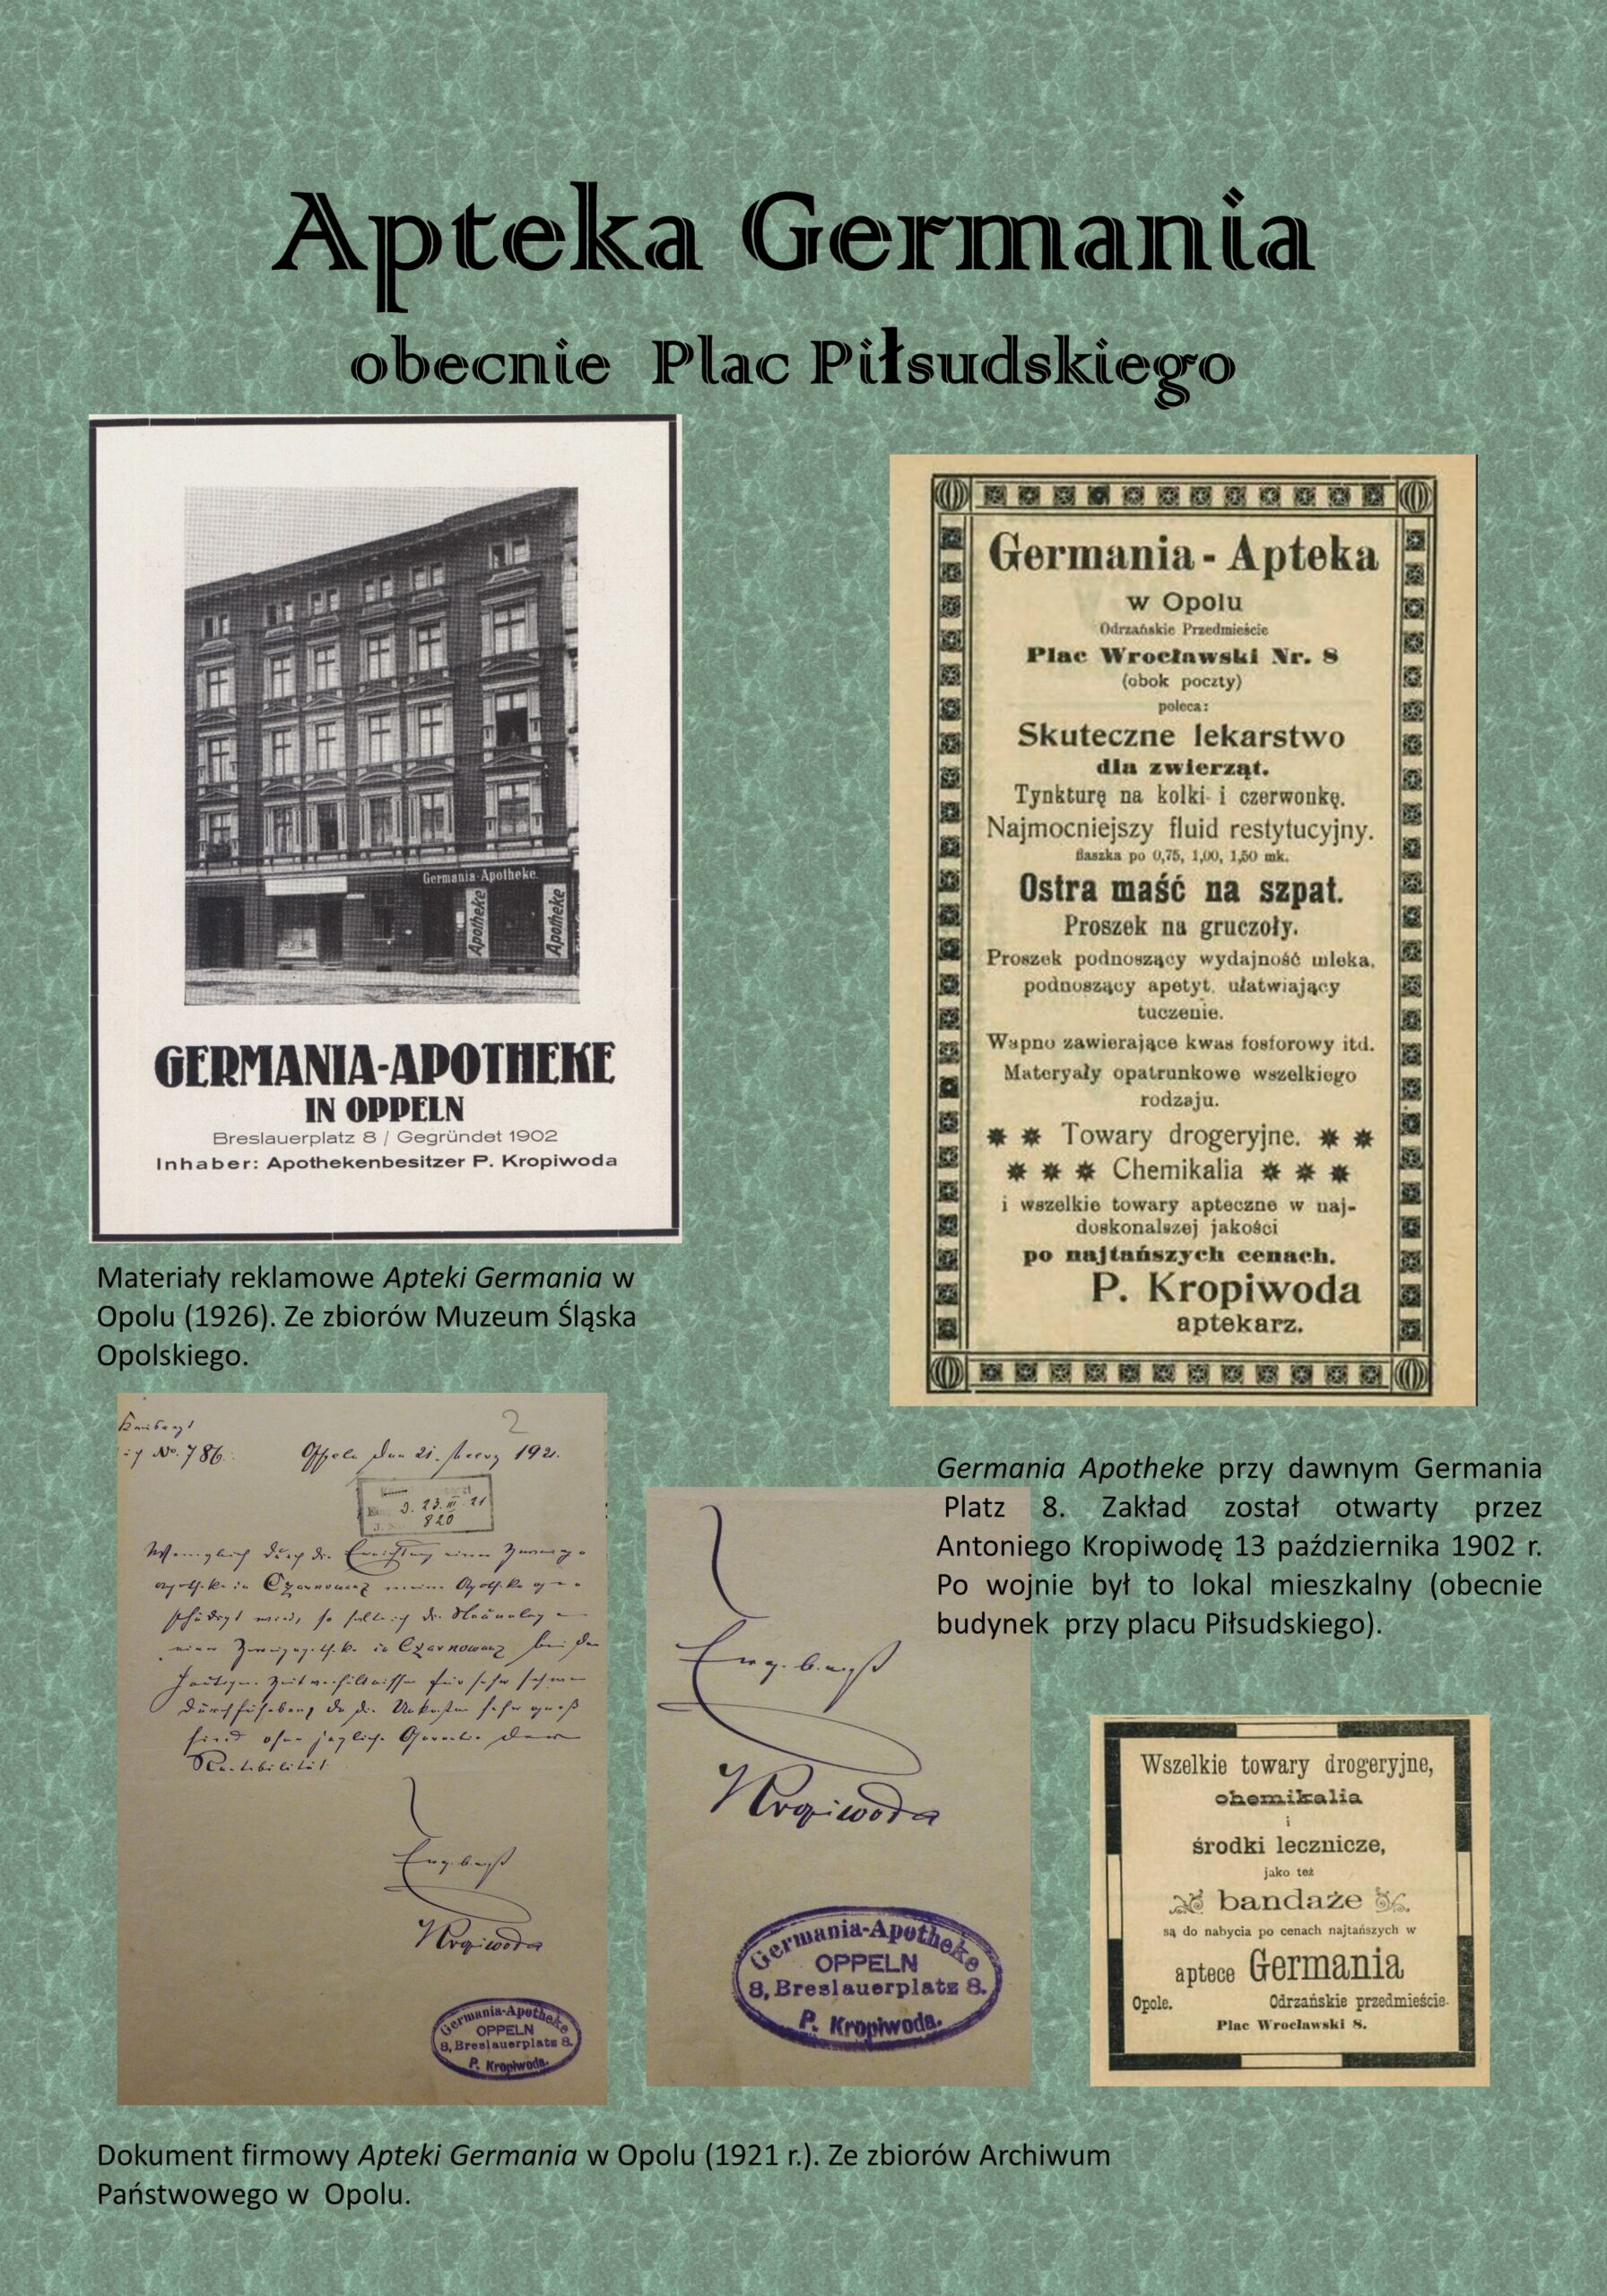 Apteka Germania
obecnie Plac Piłsudskiego
Germania-Apotheke.
Apotheke
Apotheke
GERMANIA-APOTHEKE
IN OPPELN
Breslauerplatz 8 / Gegründet 1902
Inhaber: Apothekenbesitzer P. Kropiwoda
Materiały reklamowe Apteki Germania w
Opolu (1926). Ze zbiorów Muzeum Śląska
Opolskiego.
Germania - Apteka
w Opolu
Odrzańskie Przedmieście
Plac Wrocławski Nr. 8
(obok poczty)
poleca:
Skuteczne lekarstwo
dla zwierząt.
Tynkturę na kolki i czerwonkę.
Najmocniejszy fluid restytucyjny.
flaszka po 0,75, 1,00, 1,50 mk.
Ostra maść na szpat.
Proszek na gruczoły.
Proszek podnoszący wydajność mleka,
podnoszący apetyt, ułatwiający
tuczenie.
Wapno zawierające kwas fosforowy itd.
Materyały opatrunkowe wszelkiego
rodzaju.
Towary drogeryjne.
Chemikalia
i wszelkie towary apteczne w naj-
doskonalszej jakości
po najtańszych cenach.
P. Kropiwoda
aptekarz.
Germania Apotheke przy dawnym Germania
Platz 8. Zakład został otwarty przez
Antoniego Kropiwodę 13 października 1902 r.
Po wojnie był to lokal mieszkalny (obecnie
budynek przy placu Piłsudskiego).
2
No. 786.
Oppeln den 21. 192
23. III. 21
820
Czarnowanz
Czarnowanz
Kropiwoda
Germania-Apotheke
OPPELN
8, Breslauerplatz 8.
P. Kropiwoda.
Kropiwoda
Germania-Apotheke
OPPELN
8, Breslauerplatz 8.
P. Kropiwoda.
Wszelkie towary drogeryjne,
chemikalia
i
środki lecznicze,
jako też
bandaże
są do nabycia po cenach najtańszych w
aptece Germania
Opole. Odrzańskie przedmieście.
Plac Wrocławski 8.
Dokument firmowy Apteki Germania w Opolu (1921 r.). Ze zbiorów Archiwum
Państwowego w Opolu.